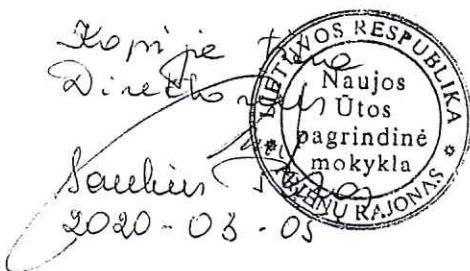 Kopija tikra
Direktorius
Saulius
2020-03-05
LIETUVOS RESPUBLIKA
Naujos
Ūtos
pagrindinė
mokykla
PRIENŲ RAJONAS